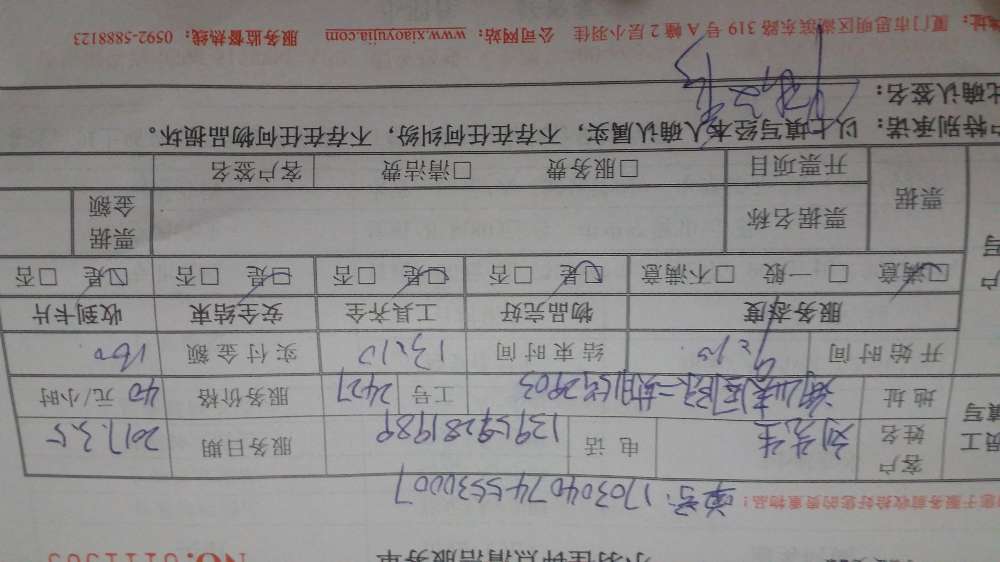 小羽佳钟点清洁服务单
单号：17030407455530007
客户姓名 刘先生 电话 13959281989 服务日期 2017.3.5
地址 工号 2427 服务价格 40 元/小时
开始时间 9:10 结束时间 13:10 实付金额 160
服务态度 物品完好 工具齐全 安全结束 收到卡片
☑满意 □一般 □不满意 ☑是 □否 ☑是 □否 ☑是 □否 ☑是 □否
票据 票据名称 票据金额
开票项目 □服务费 □清洁费 客户签名
特别承诺：以上填写经本人确认属实，不存在任何纠纷，不存在任何物品损坏。
此确认签名：
地址：厦门市思明区湖滨东路 319 号 A 幢 2 层小羽佳 公司网站：www.xiaoyujia.com 服务监督热线：0592-5888123